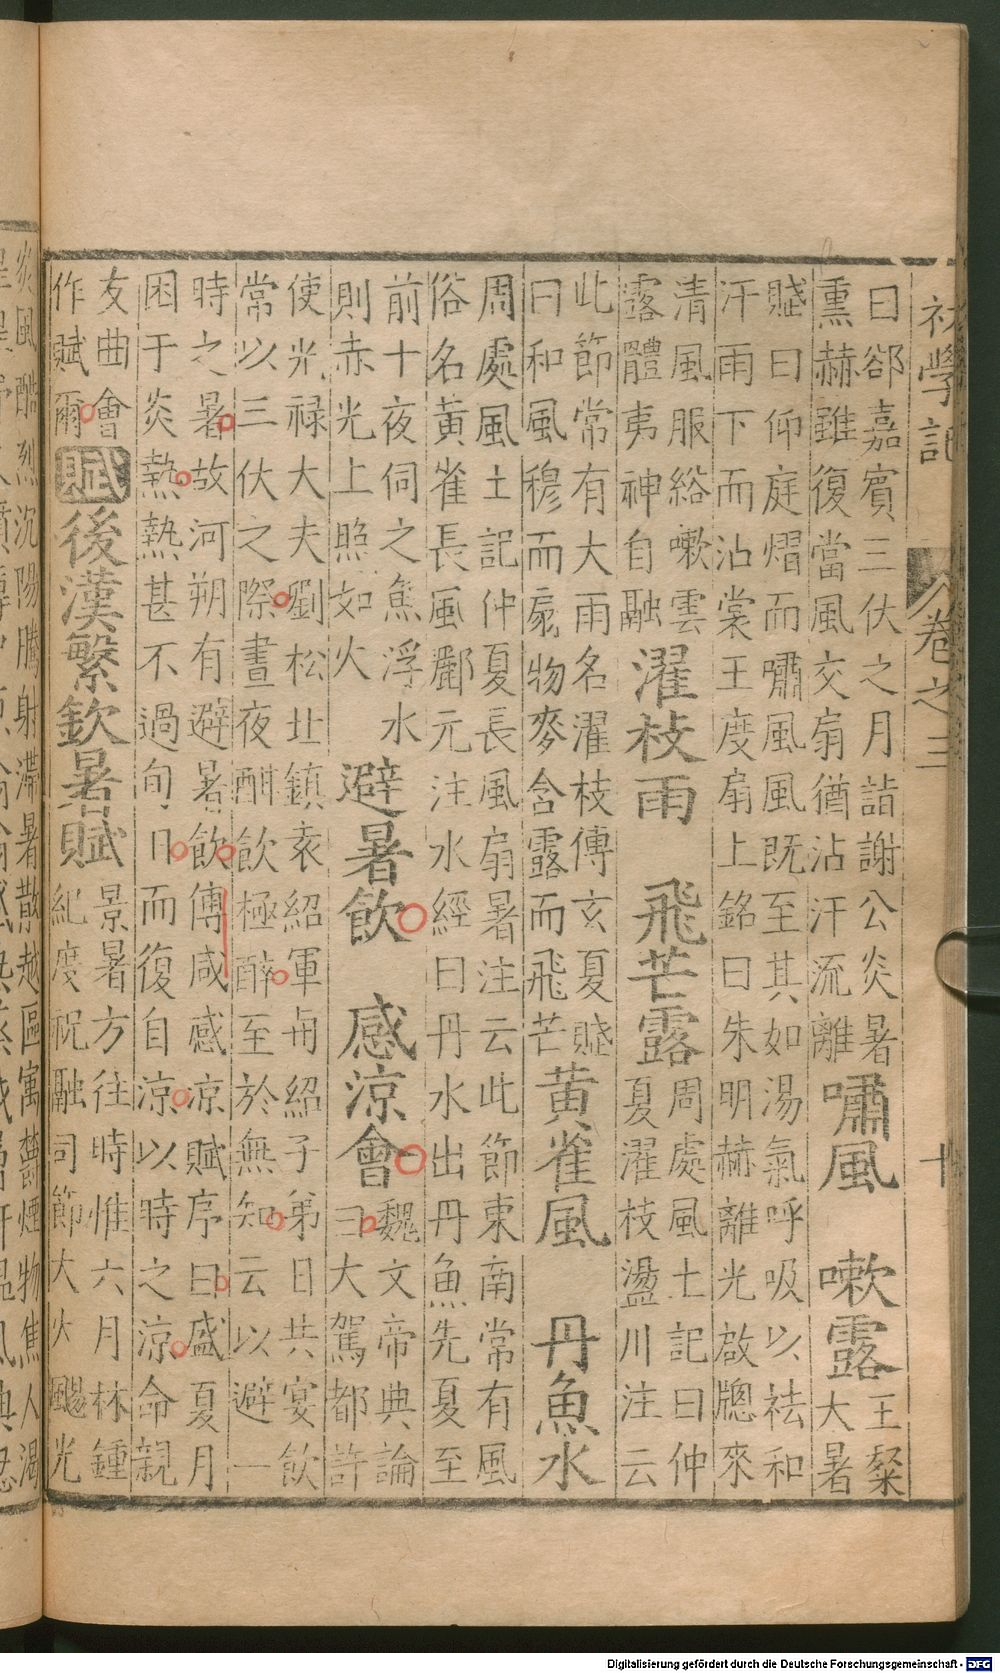 初學記 卷之三 十
曰郤嘉賓三伏之月詣謝公炎暑
熏赫雖復當風交扇猶沾汗流離
嘯風 嗽露
王粲
大暑
賦曰仰庭熠而嘯風風既至其如湯氣呼吸以祛和
汗雨下而沾裳王度扇上銘曰朱明赫離光啟牕來
清風服綌嗽雲
露體夷神自融
濯枝雨 飛芒露
周處風土記曰仲
夏濯枝盪川注云
此節常有大雨名濯枝傳玄夏賦
曰和風穆而扇物麥含露而飛芒
黃雀風 丹魚水
周處風土記仲夏長風扇暑注云此節東南常有風
俗名黃雀長風酈元注水經曰丹水出丹魚先夏至
前十夜伺之魚浮水
則赤光上照如火
避暑飲 感涼會
魏文帝典論
曰大駕都許
使光禄大夫劉松北鎮袁紹軍與紹子弟日共宴飲
常以三伏之際晝夜酣飲極醉至於無知云以避一
時之暑故河朔有避暑飲傅咸感涼賦序曰盛夏月
困于炎熱熱甚不過旬日而復自涼以時之涼命親
友曲會
作賦爾
賦後漢繁欽暑賦
景暑方往時惟六月林鍾
紀度祝融司節大火颺光
炎風酷烈沉陽騰射滯暑散越區寓欝煙物焦人渴
Digitalisierung gefördert durch die Deutsche Forschungsgemeinschaft - DFG